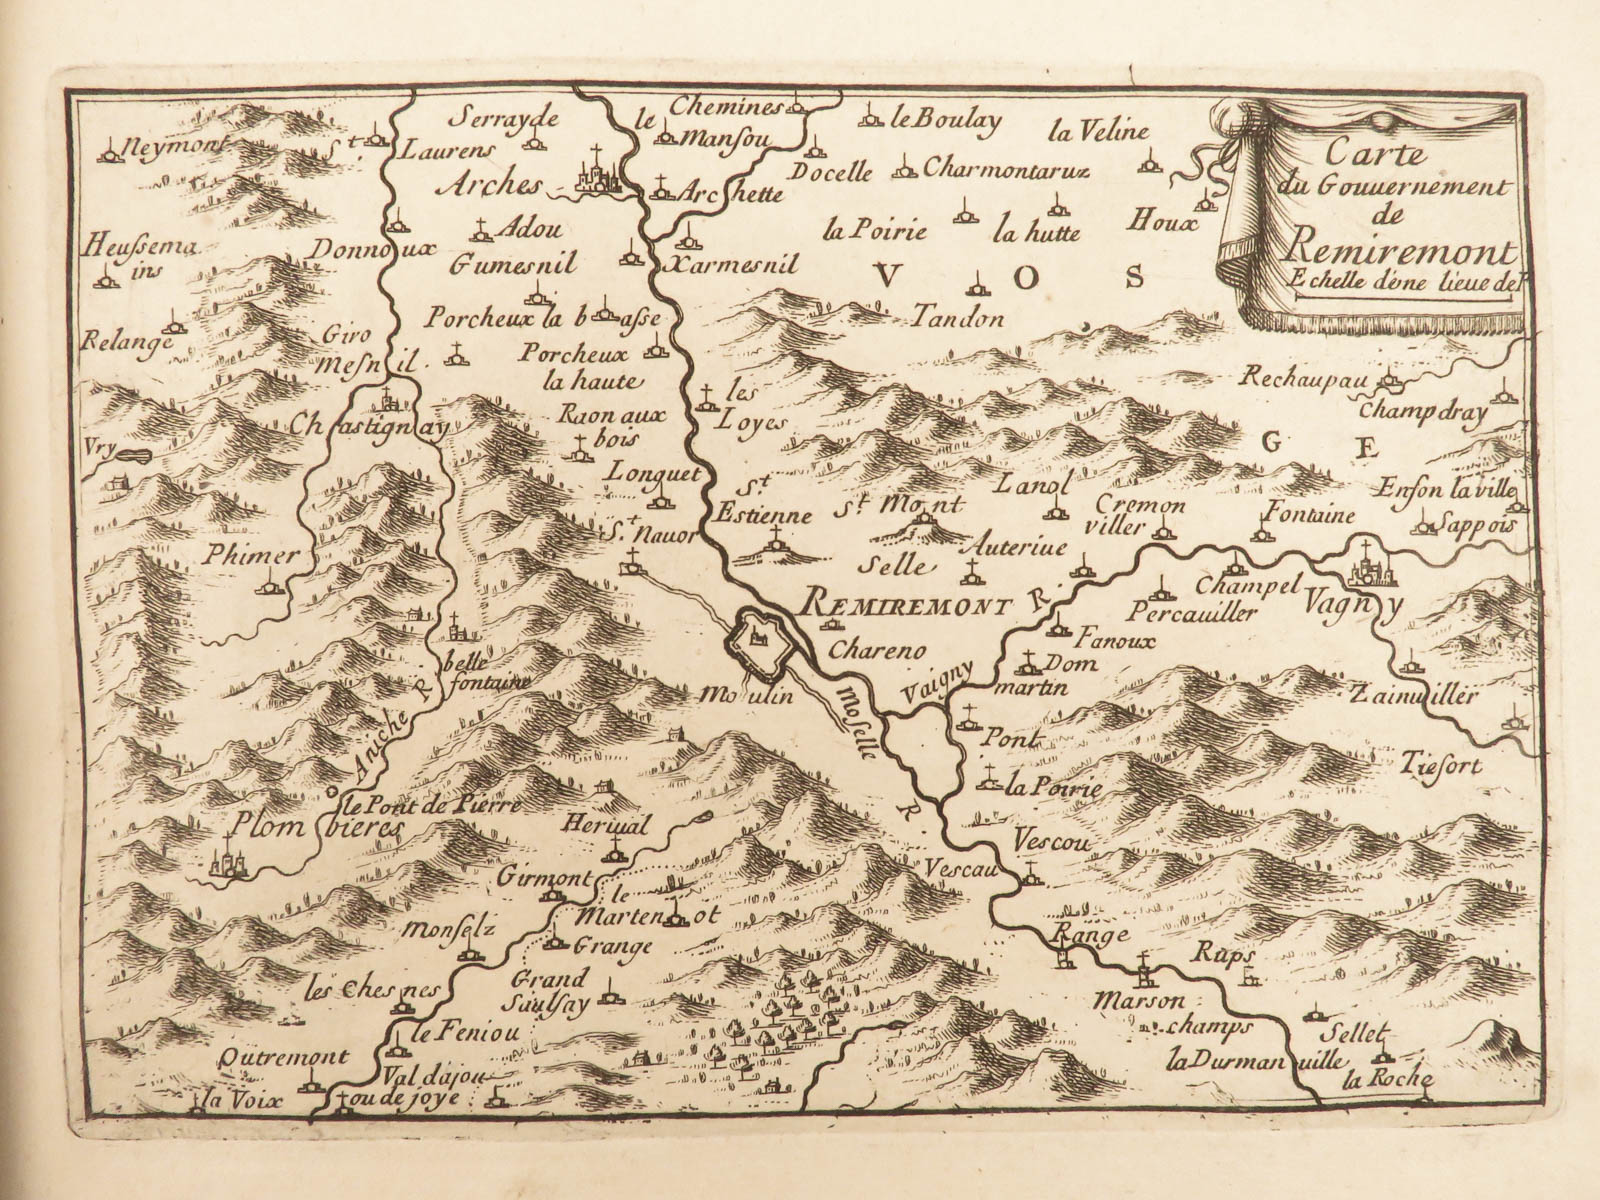 Carte
du Gouuernement
de
Remiremont
Echelle d'éne lieue de
Neymont
St.
Laurens
Serrayde
le
Mansou
Chemines
le Boulay
la Veline
Arches
Archette
Docelle
Charmontaruz
Heussema
ins
Donnoux
Adou
Gumesnil
Xarmesnil
la Poirie
la hutte
Houx
VOS
GE
Relange
Giro
Mesnil
Porcheux la basse
Porcheux
la haute
Tandon
Rechaupau
Champdray
Vry
Chastignay
Raon aux
bois
les
Loyes
Longuet
St
Estienne
St Mont
Lanol
Cremon
viller
Fontaine
Enson la ville
Sappois
Phimer
St. Nauor
Selle
Auteriue
Champel
Vagny
Percauiller
REMIREMONT
R.
Chareno
Fanoux
Dom
martin
belle
fontaine
Moulin
Moselle
R.
Vaigny
Zainuiller
Aniche R.
Pont
Tiesort
le Pont de Pierre
la Poirie
Plombieres
Heriual
Vescou
Vescau
Girmont
le
Martenot
Grange
Range
Raps
Monselz
les Chesnes
Grand
Saulsay
Marson
champs
le Feniou
Sellet
Outremont
la Durmanuille
Val dajou
ou de joye
la Voix
la Roche